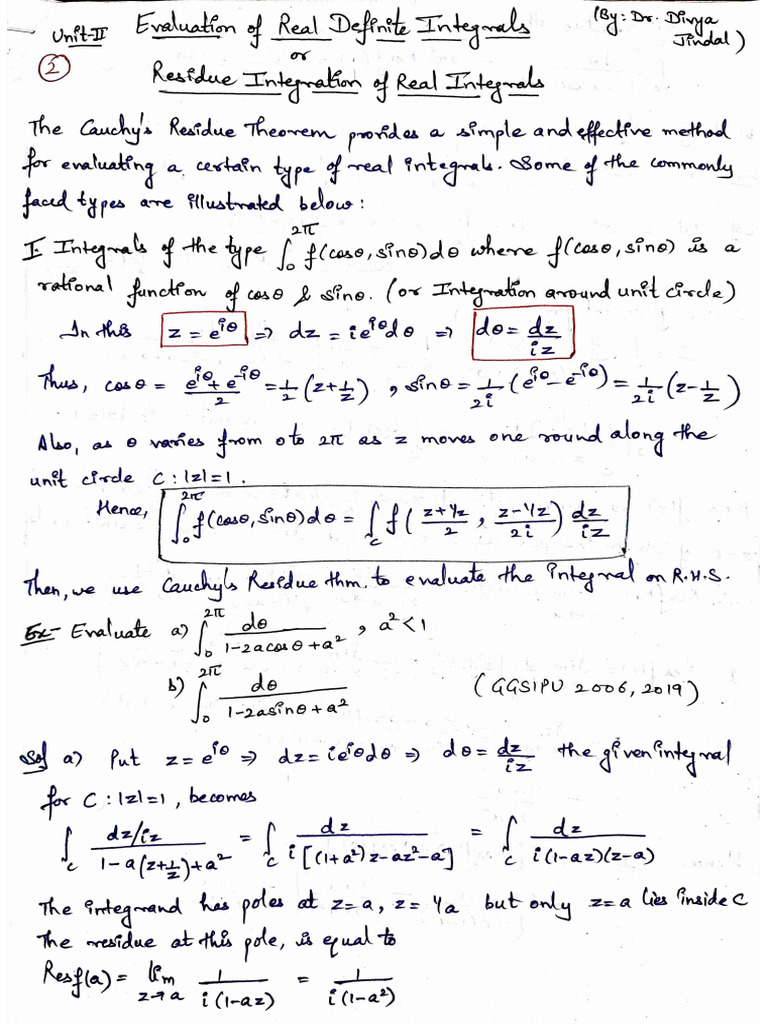 Unit-II Evaluation of Real Definite Integrals (By: Dr. Divya Jindal)
② or
Residue Integration of Real Integrals
The Cauchy's Residue Theorem provides a simple and effective method
for evaluating a certain type of real integrals. Some of the commonly
faced types are illustrated below:
I. Integrals of the type ∫₀^2π f(cosθ, sinθ)dθ where f(cosθ, sinθ) is a
rational function of cosθ & sinθ. (or Integration around unit circle)
In this z = e^iθ ⇒ dz = ie^iθ dθ ⇒ dθ = dz/iz
Thus, cosθ = (e^iθ + e^-iθ)/2 = 1/2 (z + 1/z), sinθ = 1/2i (e^iθ - e^-iθ) = 1/2i (z - 1/z)
Also, as θ varies from 0 to 2π as z moves one round along the
unit circle C : |z|=1.
Hence, ∫₀^2π f(cosθ, sinθ)dθ = ∫_C f( (z+1/z)/2 , (z-1/z)/2i ) dz/iz
Then, we use Cauchy's Residue thm. to evaluate the integral on R.H.S.
Ex- Evaluate a) ∫₀^2π dθ/(1-2acosθ+a²) , a²<1
b) ∫₀^2π dθ/(1-2asinθ+a²) (GGSIPU 2006, 2019)
Sol a) Put z = e^iθ ⇒ dz = ie^iθ dθ ⇒ dθ = dz/iz the given integral
for C : |z|=1, becomes
∫_C (dz/iz)/(1-a(z+1/z)+a²) = ∫_C dz/(i[(1+a²)z-az²-a]) = ∫_C dz/(i(1-az)(z-a))
The integrand has poles at z=a, z=1/a but only z=a lies inside C
The residue at this pole, is equal to
Res f(a) = lim z→a 1/(i(1-az)) = 1/(i(1-a²))